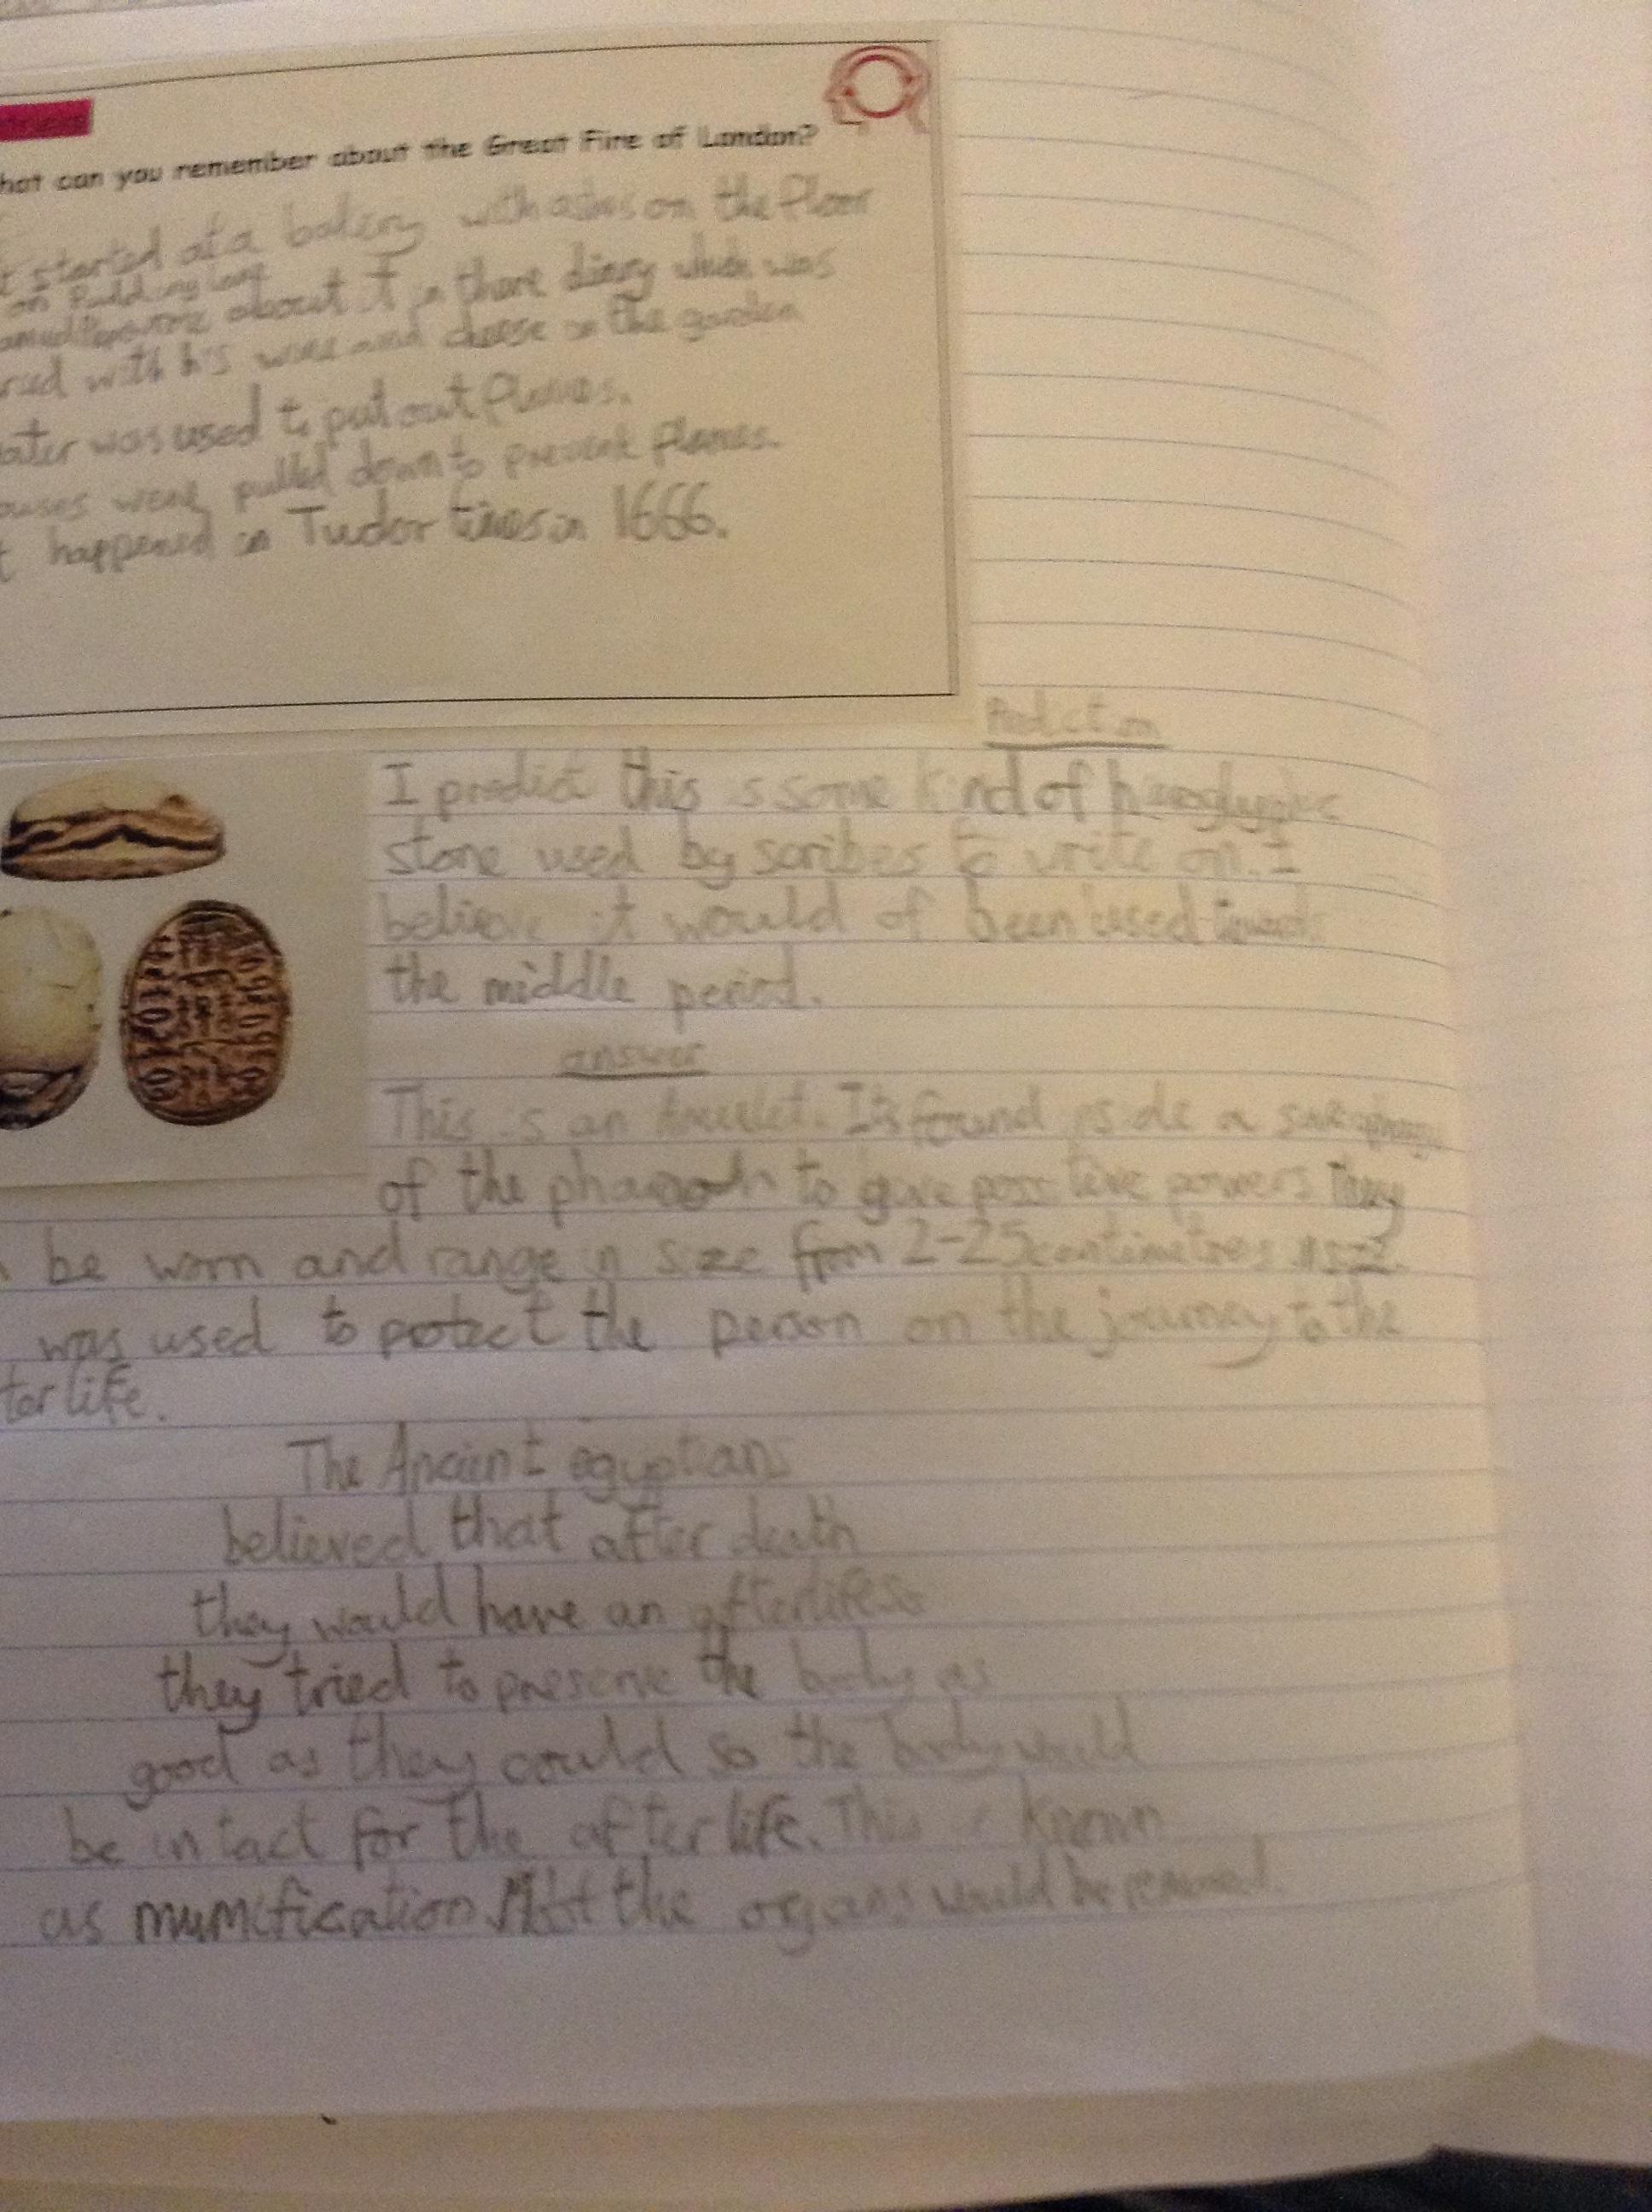 hat can you remember about the Great Fire of London?
t started at a bakery with ashes on the floor
on Pudding lane
about it in there diary which was
with his wine and cheese in the garden
ater was used to put out flames.
ouses were pulled down to prevent flames.
t happened in Tudor times in 1666.
Prediction
I predict this is some kind of
stone used by scribes to write on. I
believe it would of been used towards
the middle period.
answer
This is an Amulet. It's found inside a
of the pharaoh to give powers. They
be worn and range in size from 2-25 centimetres
was used to protect the person on the journey to the
ter life.
The Ancient egyptians
believed that after death
they would have an afterlife so
they tried to preserve the body as
good as they could so the body would
be intact for the after life. This is known
as mumification. the organs would be removed.